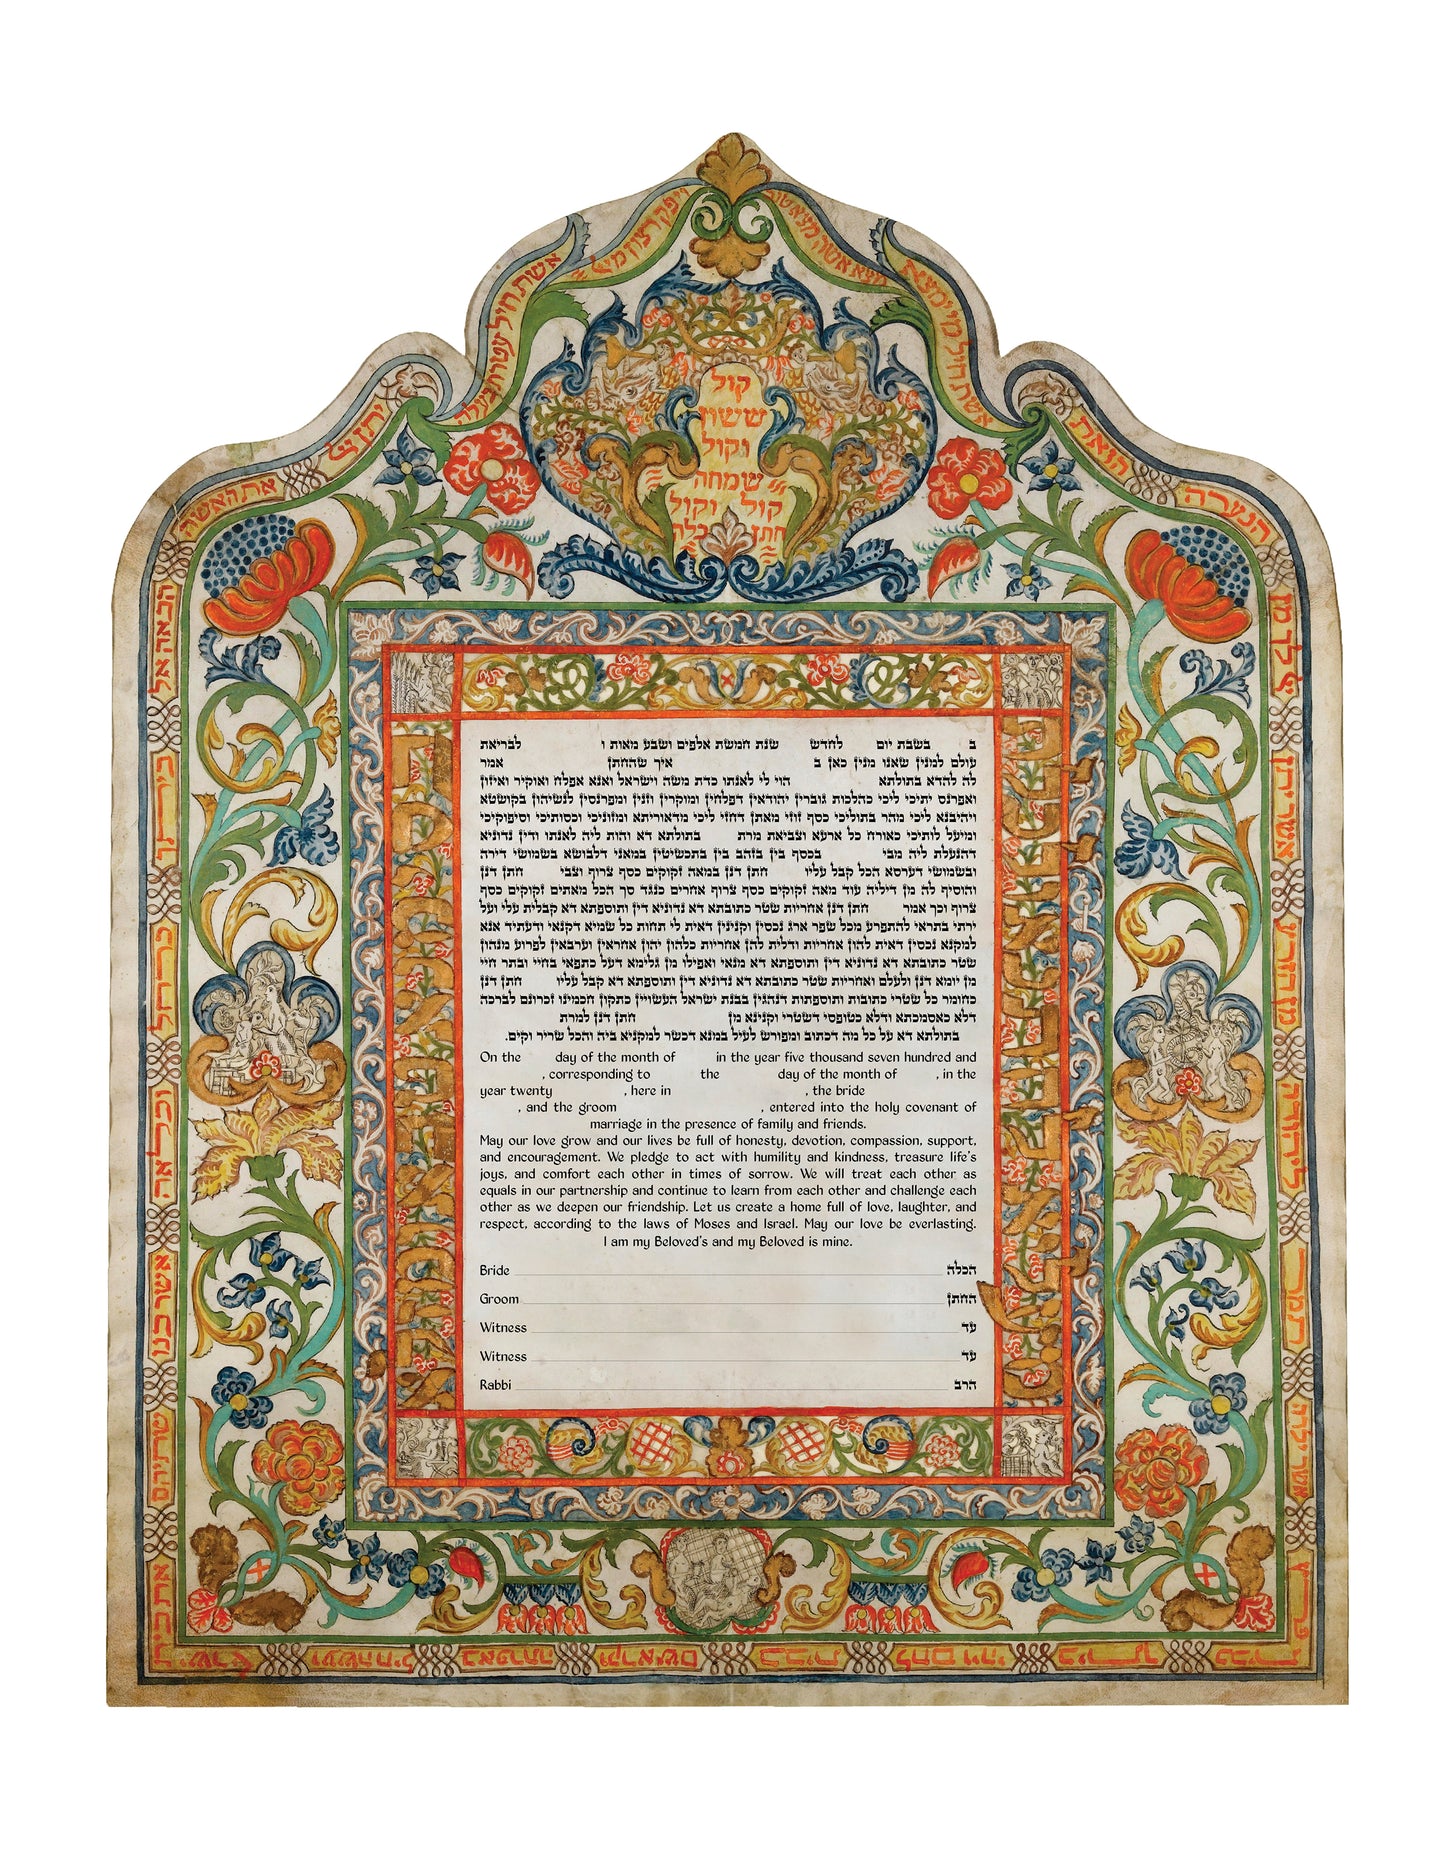 קול
ששון
וקול
שמחה
קול וקול
חתן כלה
מצא אשה מצא טוב
ויפק רצון מי״י
אשת חיל מי ימצא
אשת חיל עטרת בעלה
יתן י״י
את האשה
הבאה אל
ביתך
כרחל
וכלאה
אשר בנו
שתיהם
את בית
ישראל
ועשה חיל
באפרתה
וקרא שם
בבית
לחם ויהי
ביתך
כבית
פרץ
אשר ילדה
תמר
ליהודה
מן הזרע
אשר יתן
י״י לך מן
הנערה
הזאת
ב בשבת יום לחדש שנת חמשת אלפים ושבע מאות ו לבריאת
עולם למנין שאנו מנין כאן ב איך שהחתן אמר
לה להדא בתולתא הוי לי לאנתו כדת משה וישראל ואנא אפלח ואוקיר ואיזון
ואפרנס יתיכי ליכי כהלכות גוברין יהודאין דפלחין ומוקרין וזנין ומפרנסין לנשיהון בקושטא
ויהיבנא ליכי מהר בתוליכי כסף זוזי מאתן דחזי ליכי מדאוריתא ומזוניכי וכסותיכי וסיפוקיכי
ומיעל לותיכי כאורח כל ארעא וצביאת מרת בתולתא דא והות ליה לאנתו ודין נדוניא
דהנעלת ליה מבי בכסף בין בזהב בין בתכשיטין במאני דלבושא בשמושי דירה
ובשמושי דערסא הכל קבל עליו חתן דנן במאה זקוקים כסף צרוף וצבי חתן דנן
והוסיף לה מן דיליה עוד מאה זקוקים כסף צרוף אחרים כנגד סך הכל מאתים זקוקים כסף
צרוף וכך אמר חתן דנן אחריות שטר כתובתא דא נדוניא דין ותוספתא דא קבלית עלי ועל
ירתי בתראי להתפרע מכל שפר ארג נכסין וקנינין דאית לי תחות כל שמיא דקנאי ודעתיד אנא
למקנא נכסין דאית להון אחריות ודלית להן אחריות כלהון יהון אחראין וערבאין לפרוע מנהון
שטר כתובתא דא נדוניא דין ותוספתא דא מנאי ואפילו מן גלימא דעל כתפאי בחיי ובתר חיי
מן יומא דנן ולעלם ואחריות שטר כתובתא דא נדוניא דין ותוספתא דא קבל עליו חתן דנן
כחומר כל שטרי כתובות ותוספתות דנהגין בבנת ישראל העשויין כתקון חכמינו זכרונם לברכה
דלא כאסמכתא ודלא כטופסי דשטרי וקנינא מן חתן דנן למרת
בתולתא דא על כל מה דכתוב ומפורש לעיל במנא דכשר למקניא ביה והכל שריר וקים.
On the day of the month of in the year five thousand seven hundred and
, corresponding to the day of the month of , in the
year twenty , here in , the bride
, and the groom , entered into the holy covenant of
marriage in the presence of family and friends.
May our love grow and our lives be full of honesty, devotion, compassion, support,
and encouragement. We pledge to act with humility and kindness, treasure life's
joys, and comfort each other in times of sorrow. We will treat each other as
equals in our partnership and continue to learn from each other and challenge each
other as we deepen our friendship. Let us create a home full of love, laughter, and
respect, according to the laws of Moses and Israel. May our love be everlasting.
I am my Beloved's and my Beloved is mine.
Bride הכלה
Groom החתן
Witness עד
Witness עד
Rabbi הרב